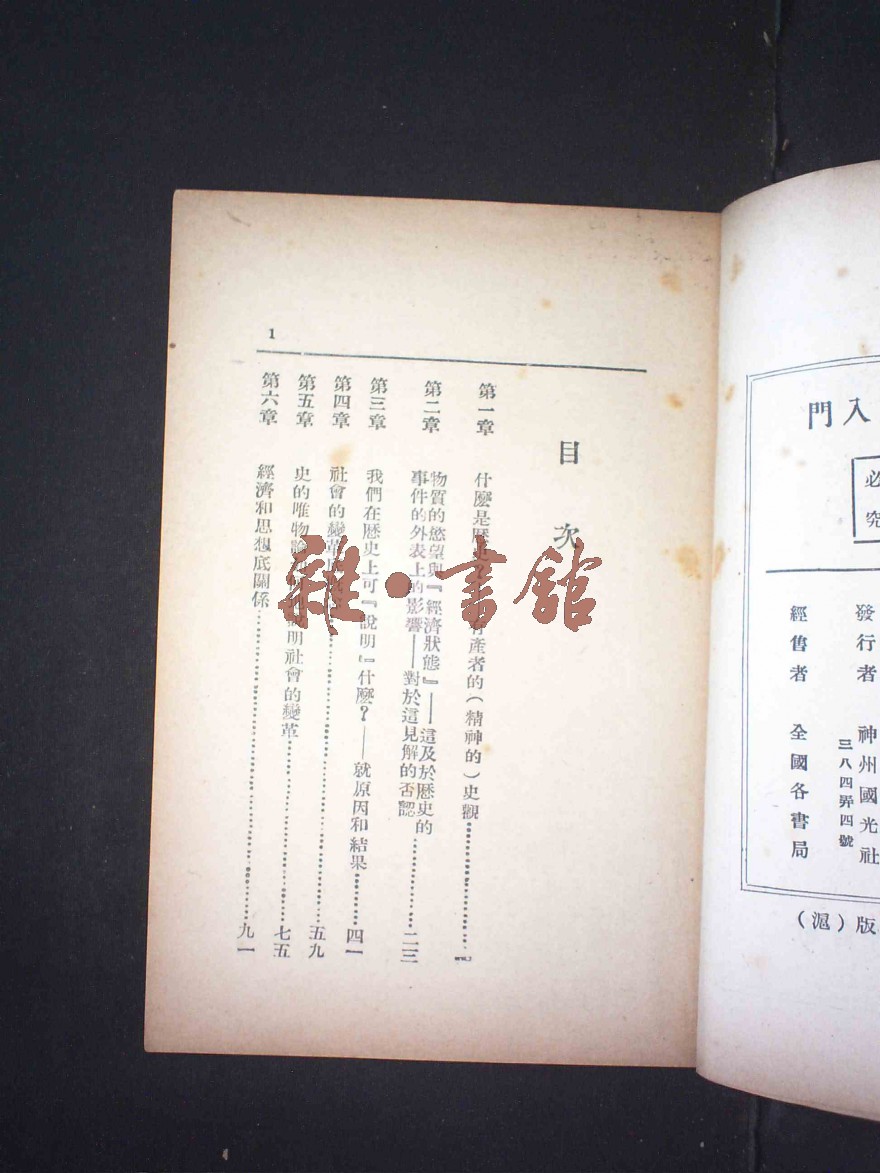 目次
第一章 什麼是歷史？ 有產者的（精神的）史觀
第二章 物質的慾望與『經濟狀態』——這及於歷史的
事件的外表上的影響——對於這見解的否認 二三
第三章 我們在歷史上可『說明』什麼？——就原因和結果 四一
第四章 社會的變革 五九
第五章 史的唯物論 說明社會的變革 七五
第六章 經濟和思想底關係 九一
1
雜·書館
入門
必
究
發行者 神州國光社
三八四弄四號
經售者 全國各書局
（滬）版